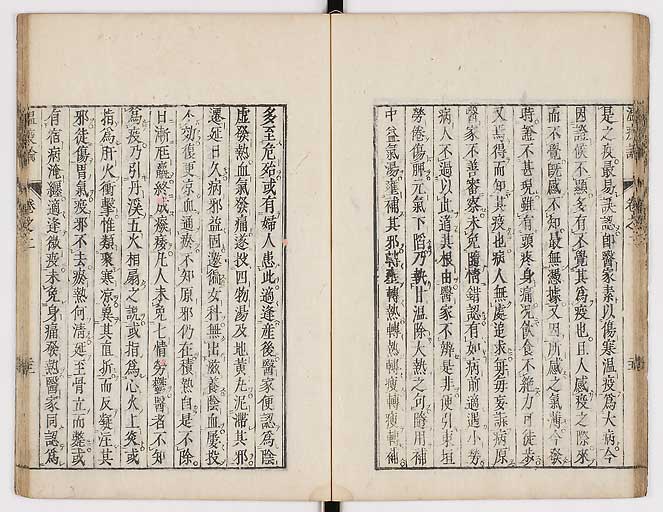 是之疫最易誤認即醫家素以傷寒温疫爲大病今
因證候不顯多有不覺其爲疫也且人感疫之際來
而不覺既感不知最無憑據又因所感之氣薄今發
時蓋不甚現雖有頭疼身痛況飲食不絶力可徒步
又焉得而知其疫也病人無處追求每每妄訴病原
醫家不善審察未免隨情錯認有如病前適遇小勞
病人不過以此道其根由醫家不辨是非便引東垣
勞倦傷脾元氣下陷乃執甘温除大熱之句隨用補
中益氣湯壅補其邪轉壅轉熱轉熱轉瘦轉瘦轉補
多至危殆或有婦人患此適逢産後醫家便認爲陰
虚發熱血氣發痛遂投四物湯及地黄丸泥滯其邪
遷延日久病邪益固邀徧女科無出滋養陰血屢投
不効復更凉血通瘀不知原邪仍在積熱自是不除
日漸尫羸終成痿痿凡人未免七情勞鬱醫者不知
爲疫乃引丹溪五火相扇之說或指爲心火上炎或
指爲肝火衝擊惟類聚寒凉冀其直折而反凝注其
邪徒傷胃氣疫邪不去瘀熱何清延至骨立而斃或
有宿病淹纏適逢微疫未免身痛發熱醫家同認爲
温疫論
卷之二